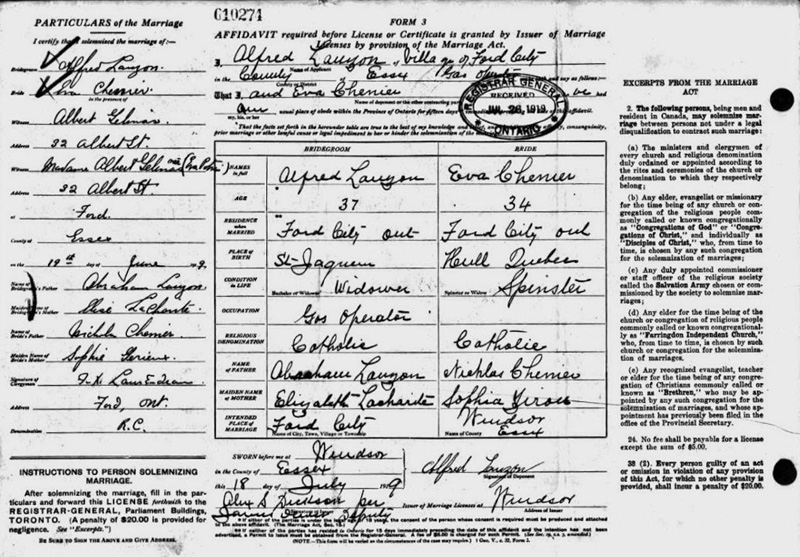 PARTICULARS of the Marriage
I certify that I solemnized the marriage of:—
Bridegroom Alfred Lauzon
Bride Eva Chenier
in the presence of
Witness Albert
Address 32 Albert St.
Witness Madame Albert
Address 32 Albert St
at Ford
County of Essex
on 19th day of June 19
Name of Bridegroom's Father Abraham Lauzon
Maiden Name of Bridegroom's Mother Elise LaCharite
Name of Bride's Father Chenier
Maiden Name of Bride's Mother Sophie
Signature of Clergyman
Address Ford, Ont.
Denomination R.C.
INSTRUCTIONS TO PERSON SOLEMNIZING
MARRIAGE.
After solemnizing the marriage, fill in the par-
ticulars and forward this LICENSE forthwith to the
REGISTRAR-GENERAL, Parliament Buildings,
TORONTO. (A penalty of $20.00 is provided for
negligence. See "Excerpts.")
BE SURE TO SIGN THE ABOVE AND GIVE ADDRESS.
010274
FORM 3
AFFIDAVIT required before License or Certificate is granted by Issuer of Marriage
Licenses by provision of the Marriage Act.
I, Alfred Lauzon of Village of Ford City
Name of Applicant
in the County Essex Gas operator and say as follows:
County or District
That I and Eva Chenier
Name of deponent or other contracting party
our usual place of abode within the Province of Ontario for fifteen days
my, his, or her
That the facts set forth in the hereunder table are true to the best of my knowledge and consanguinity,
prior marriage or other lawful cause or legal impediment to bar or hinder the solemnization of the marriage.
REGISTRAR GENERAL
RECEIVED
JUL 26 1919
ONTARIO
BRIDEGROOM BRIDE
NAMES in full Alfred Lauzon Eva Chenier
AGE 37 34
RESIDENCE when MARRIED Ford City Ont Ford City Ont
PLACE OF BIRTH Hull Quebec
CONDITION IN LIFE Bachelor or Widower Widower Spinster or Widow Spinster
OCCUPATION Gas Operator
RELIGIOUS DENOMINATION Catholic Catholic
NAME OF FATHER Abraham Lauzon Chenier
MAIDEN NAME OF MOTHER Elizabeth Sophia
INTENDED PLACE OF MARRIAGE Ford City Windsor
Name of City, Town, Village or Township Name of County Essex
SWORN before me at Windsor
in the County of Essex
this 18 day of July 19
Alfred Lauzon
Signature of Deponent
Deputy
Issuer of Marriage Licenses at Windsor
Address of Issuer
EXCERPTS FROM THE MARRIAGE
ACT
2. The following persons, being men and
resident in Canada, may solemnize mar-
riage between persons not under a legal
disqualification to contract such marriage:
(a) The ministers and clergymen of
every church and religious denomination
duly ordained or appointed according to
the rites and ceremonies of the church or
denomination to which they respectively
belong;
(b) Any elder, evangelist or missionary
for the time being of any church or con-
gregation of the religious people com-
monly called or known congregationally
as "Congregations of God" or "Congre-
gations of Christ," and individually as
"Disciples of Christ," who, from time to
time, is chosen by any such congregation
for the solemnization of marriages;
(c) Any duly appointed commissioner
or staff officer of the religious society
called the Salvation Army chosen or com-
missioned by the society to solemnize mar-
riages;
(d) Any elder for the time being of the
church or congregation of religious people
commonly called or known congregational-
ly as "Farringdon Independent Church,"
who, from time to time, is chosen by such
church or congregation for the solemniza-
tion of marriages.
(e) Any recognized evangelist, teacher
or elder for the time being of any congre-
gation of Christians commonly called or
known as "Brethren," who may be ap-
pointed by any such congregation for the
solemnization of marriages, and whose ap-
pointment has previously been filed in the
office of the Provincial Secretary.
24. No fee shall be payable for a license
except the sum of $5.00.
38 (2). Every person guilty of an act or
omission in violation of any provision of
this Act, for which no other penalty is pro-
vided, shall incur a penalty of $20.00.